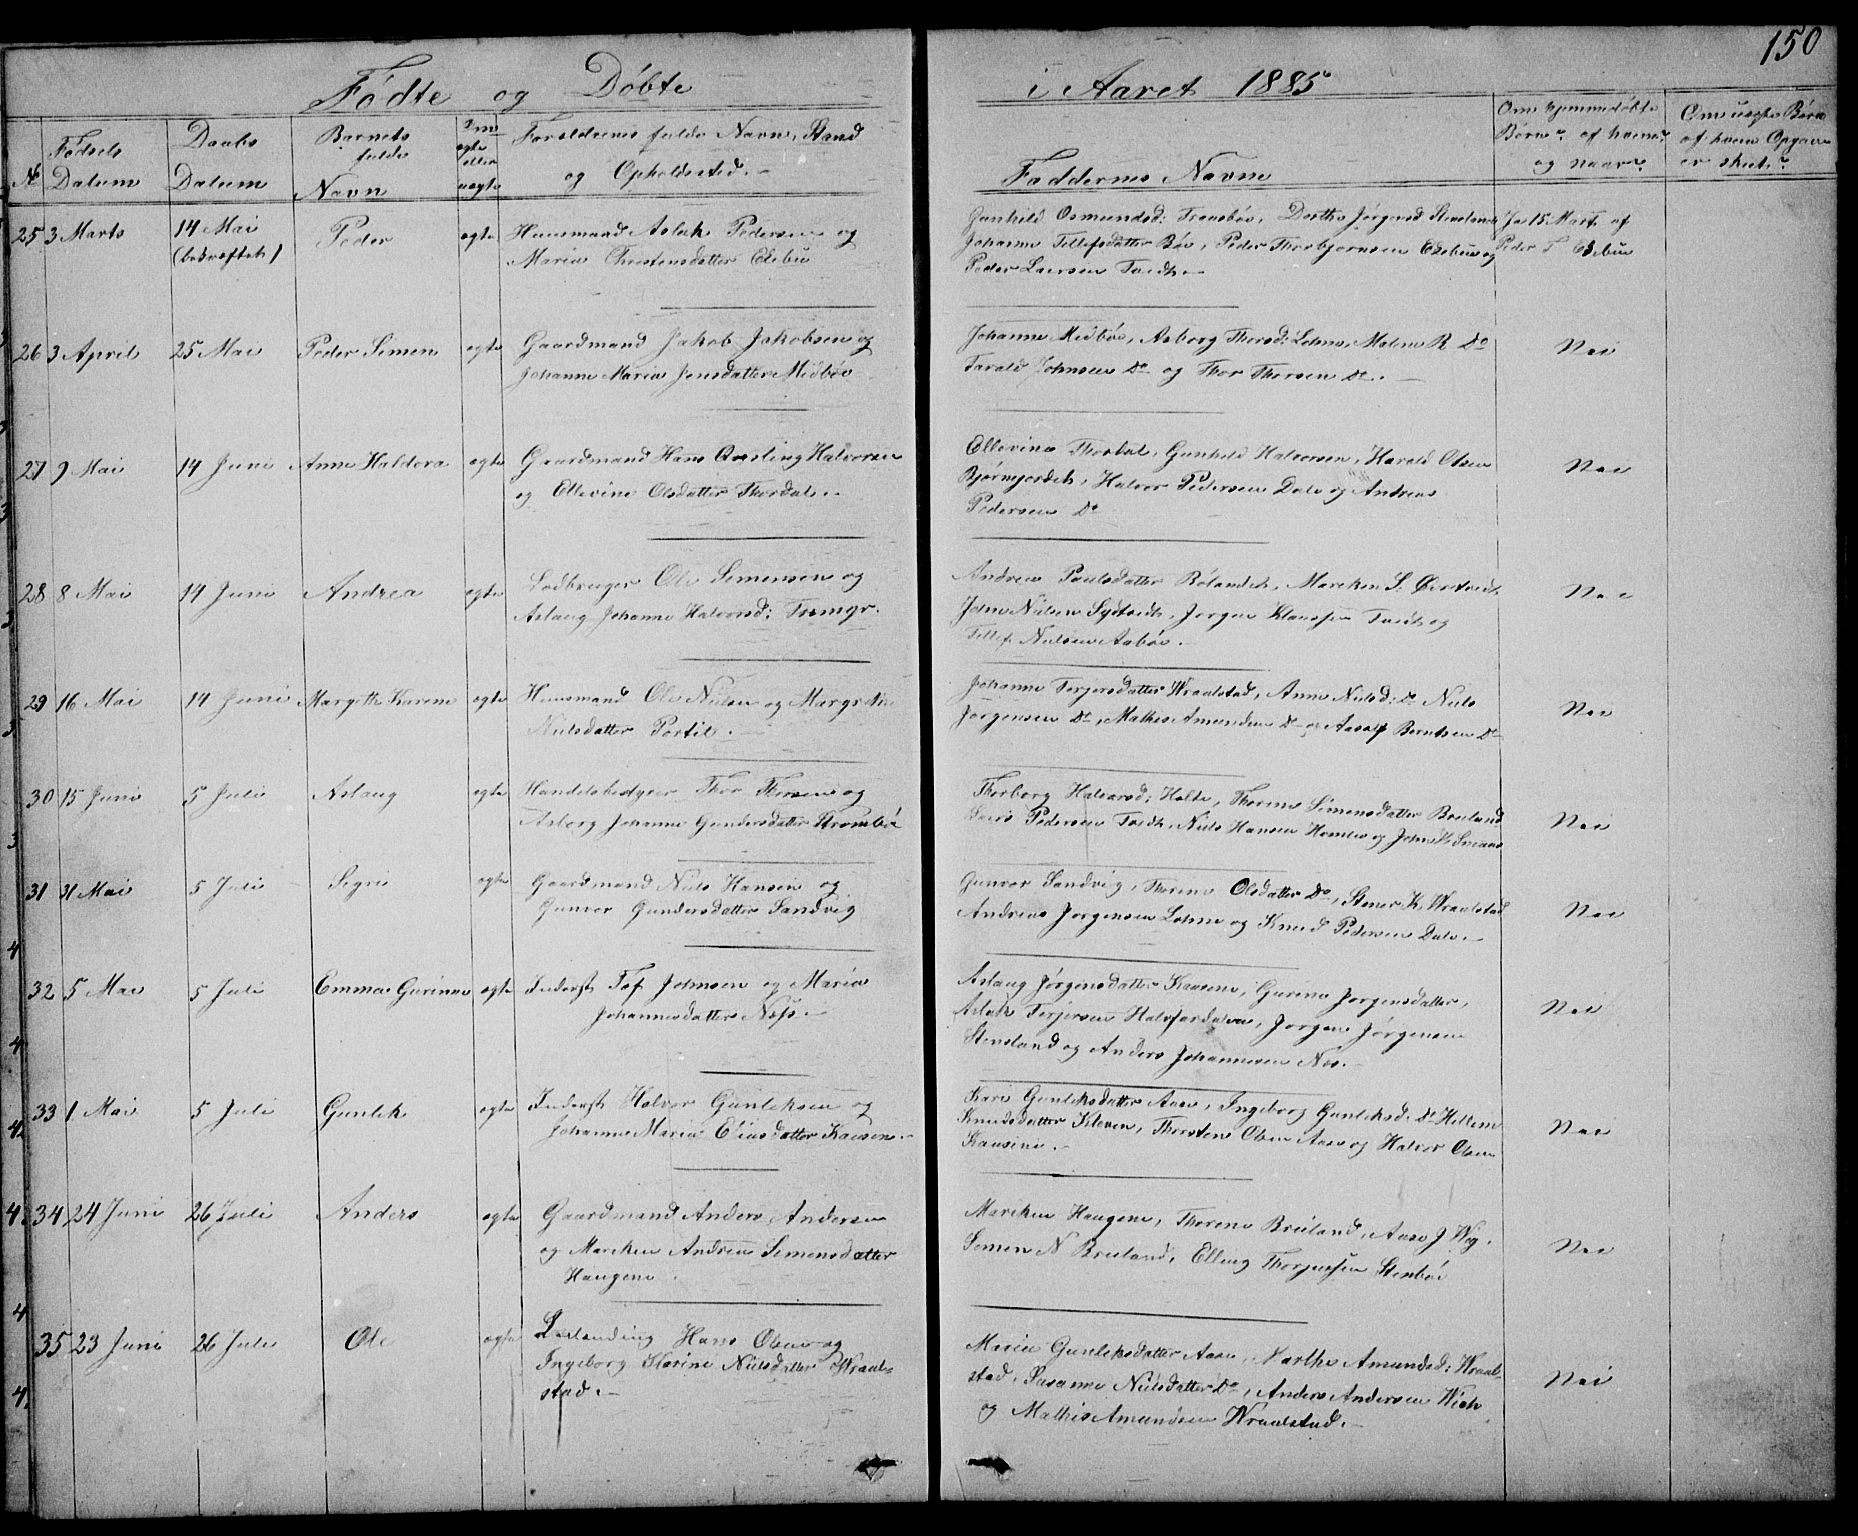 150
Fødte og Døbte i Aaret 1885
№ Fødsels Datum Daabs Datum Barnets fulde Navn Om ægte eller uægte Forældrenes fulde Navne, Stand og Opholdssted. Faddernes Navne Om hjemmedøbte Børn af hvem og naar Om uægte Børn af hvem Opgaven er skeet
25 3 Marts 14 Mai (bekræftet) Peder ægte Huusmand Aslak Pedersen og
Maria Christensdatter Eszbu
Gunhild Osmundsd: Trousbøe, Dorthe Jørgensd Steveland
Johanne Tellefsdatter Bøe, Peder Thorbjørnsen og
Peder Laersen Tvedt.
Ja 15 Marts af
Peder T
26 3 April 25 Mai Peder Simen ægte Gaardmand Jakob Jakobsen og
Johanne Maria Jensdatter Midbøe
Johanne Midbøe, Asborg Thorsd: Lohne, Malene R Do
Tarald Johnsen Do og Thor Thorsen Do.
Nei
27 9 Mai 14 Juni Anne Haldora ægte Gaardmand Hans Halvorsen
og Ellevine Olsdatter Thordal.
Ellevine Thordal, Gunhild Halvorsen, Harald Olsen
Bjørnjordet, Halvor Pedersen Dale og Andreas
Pedersen Do
Nei
28 8 Mai 14 Juni Andrea ægte Lodbruger Ole Simensen og
Aslaug Johanne Halvorsd:
Andrea Paulsdatter Rølandet, Mareken S.
John Nielsen Sydtvedt, Jørgen Klausen Tvedt og
Tellef Nielsen Aabøe.
Nei
29 16 Mai 14 Juni Margethe Karene ægte Huusmand Ole Nielsen og Margrethe
Nielsdatter Portil.
Johanne Terjersdatter Wraalstad, Anne Nielsd: Do Niels
Jørgensen Do, Mathis Amundsen Do og Aasolf Berntsen Do
Nei
30 15 Juni 5 Juli Aslaug ægte Handelsbestyrer Thor Thorsen og
Asborg Johanne Gundersdatter Strombøe
Thorborg Halvorsd: Holte, Thorine Simensdatter Breiland
Laers Pedersen Tvedt, Niels Hansen og John
Nei
31 31 Mai 5 Juli Sigri ægte Gaardmand Niels Hansen og
Gunvor Gundersdatter Sandvig
Gunvor Sandvig, Thorine Olsdatter Do, Stener K. Wraalstad
Andreas Jørgensen Lohne og Knud Pedersen Dale.
Nei
32 5 Mai 5 Juli Emma Gurine ægte Inderst Tof Johnsen og Maria
Johannesdatter Næs.
Aslaug Jørgensdatter Kausene, Gurine Jørgensdatter,
Aslak Terjersen Halvfardalen, Jørgen Jørgensen
Stensland og Anders Johannesen Næs.
Nei
33 1 Mai 5 Juli Gunlek ægte Inderst Halvor Gunleksen og
Johanne Maria Eliasdatter Kausene.
Kari Gunleksdatter Aase, Ingeborg Gunleksd: Do Hellene
Knudsdatter Kleven, Thorsten Olsen Aase og Halvor Olsen
Kausene.
Nei
34 24 Juni 26 Juli Anders ægte Gaardmand Anders Andersen
og Mareken Andrea Simensdatter
Haugene.
Mareken Haugene, Thorene Breiland, Aase J. Weg.
Simen N Breiland, Elling Thorjussen Stenbøe
Nei
35 23 Juni 26 Juli Ole ægte Hans Olsen og
Ingeborg Karine Nielsdatter Wraal-
stad.
Maria Gunleksdatter Aase, Marthe Amundsd: Wraal-
stad, Susanne Nielsdatter Do, Anders Andersen Wieh
og Mathis Amundsen Wraalstad.
Nei